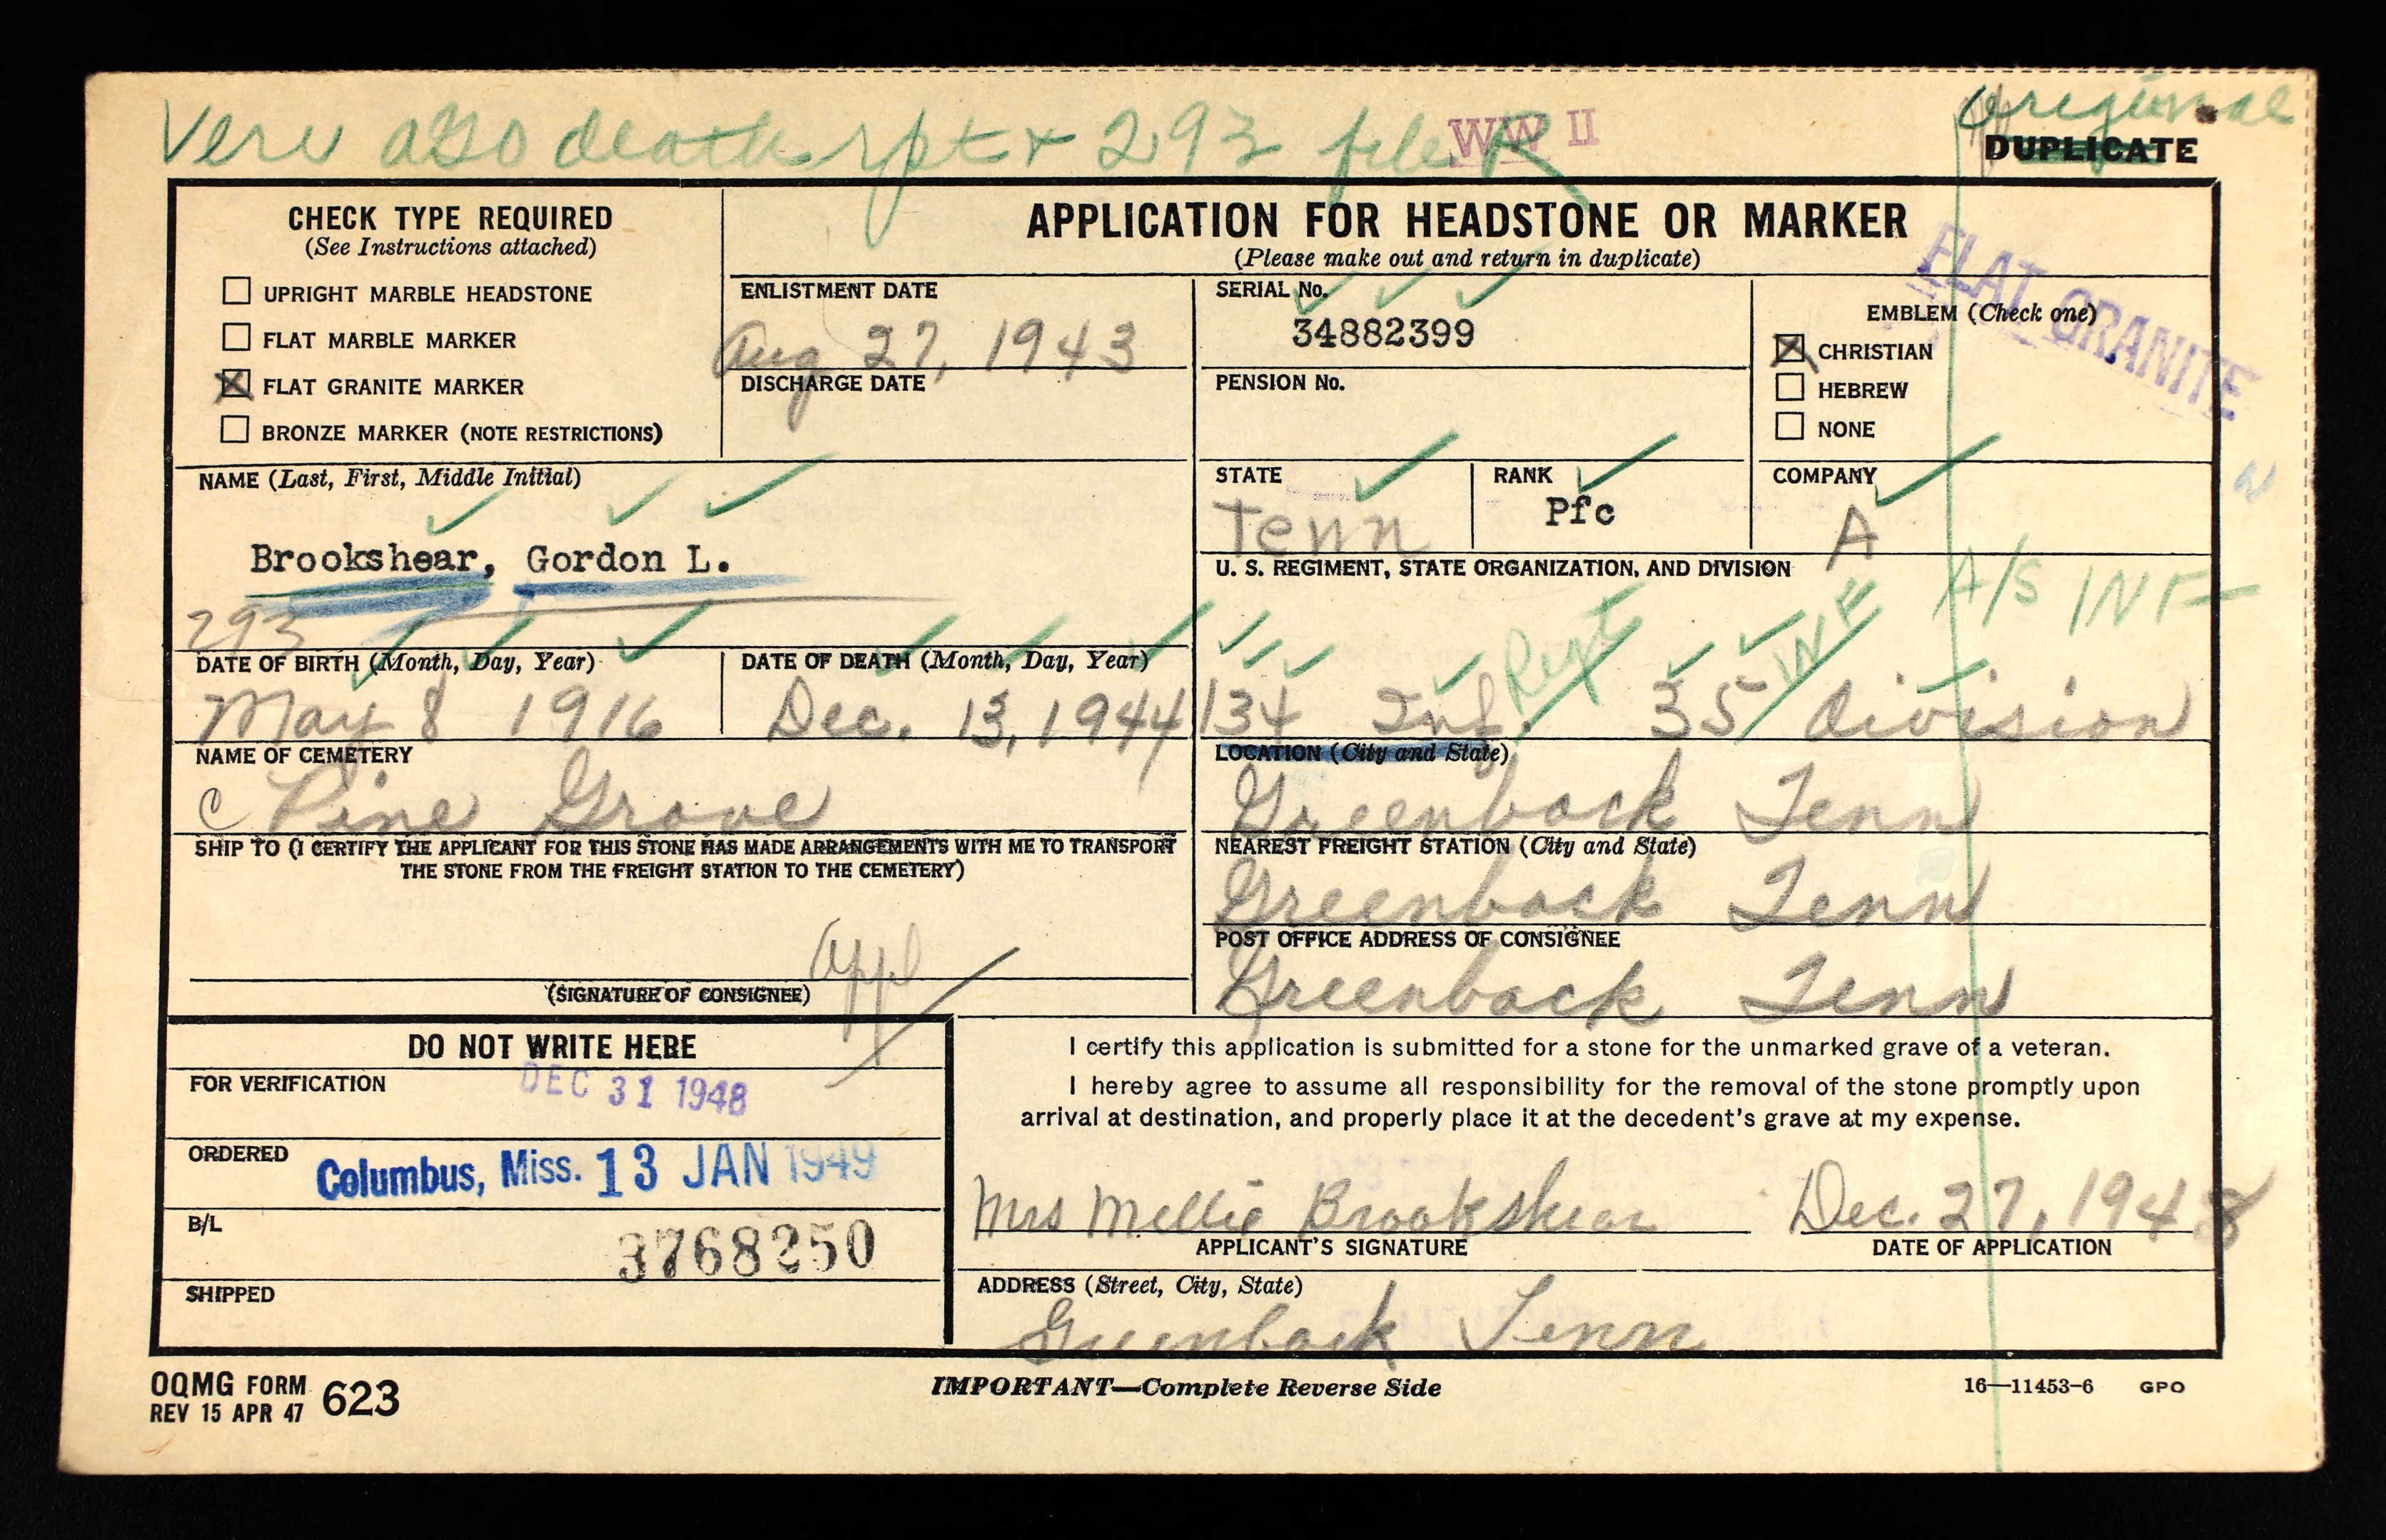 Veri AGO death rpt + 293 file R
WW II
Original
DUPLICATE
CHECK TYPE REQUIRED
(See Instructions attached)
UPRIGHT MARBLE HEADSTONE
FLAT MARBLE MARKER
FLAT GRANITE MARKER
BRONZE MARKER (NOTE RESTRICTIONS)
APPLICATION FOR HEADSTONE OR MARKER
(Please make out and return in duplicate)
ENLISTMENT DATE
Aug 27, 1943
DISCHARGE DATE
SERIAL No.
34882399
PENSION No.
EMBLEM (Check one)
CHRISTIAN
HEBREW
NONE
FLAT GRANITE
NAME (Last, First, Middle Initial)
Brookshear, Gordon L.
293
STATE
Tenn
RANK
Pfc
COMPANY
A
U. S. REGIMENT, STATE ORGANIZATION, AND DIVISION
A/S INF
Regt INF
134 Inf. 35 division
DATE OF BIRTH (Month, Day, Year)
May 8 1916
DATE OF DEATH (Month, Day, Year)
Dec. 13, 1944
NAME OF CEMETERY
C Pine Grove
LOCATION (City and State)
Greenback Tenn
SHIP TO (I CERTIFY THE APPLICANT FOR THIS STONE HAS MADE ARRANGEMENTS WITH ME TO TRANSPORT
THE STONE FROM THE FREIGHT STATION TO THE CEMETERY)
appl
(SIGNATURE OF CONSIGNEE)
NEAREST FREIGHT STATION (City and State)
Greenback Tenn
POST OFFICE ADDRESS OF CONSIGNEE
Greenback Tenn
DO NOT WRITE HERE
FOR VERIFICATION
DEC 31 1948
ORDERED
Columbus, Miss. 13 JAN 1949
B/L
3768250
SHIPPED
I certify this application is submitted for a stone for the unmarked grave of a veteran.
I hereby agree to assume all responsibility for the removal of the stone promptly upon
arrival at destination, and properly place it at the decedent's grave at my expense.
Mrs Mellie Brookshear
Dec. 27, 1948
APPLICANT'S SIGNATURE
DATE OF APPLICATION
ADDRESS (Street, City, State)
Greenback Tenn
OQMG FORM 623
REV 15 APR 47
IMPORTANT—Complete Reverse Side
16—11453-6 GPO